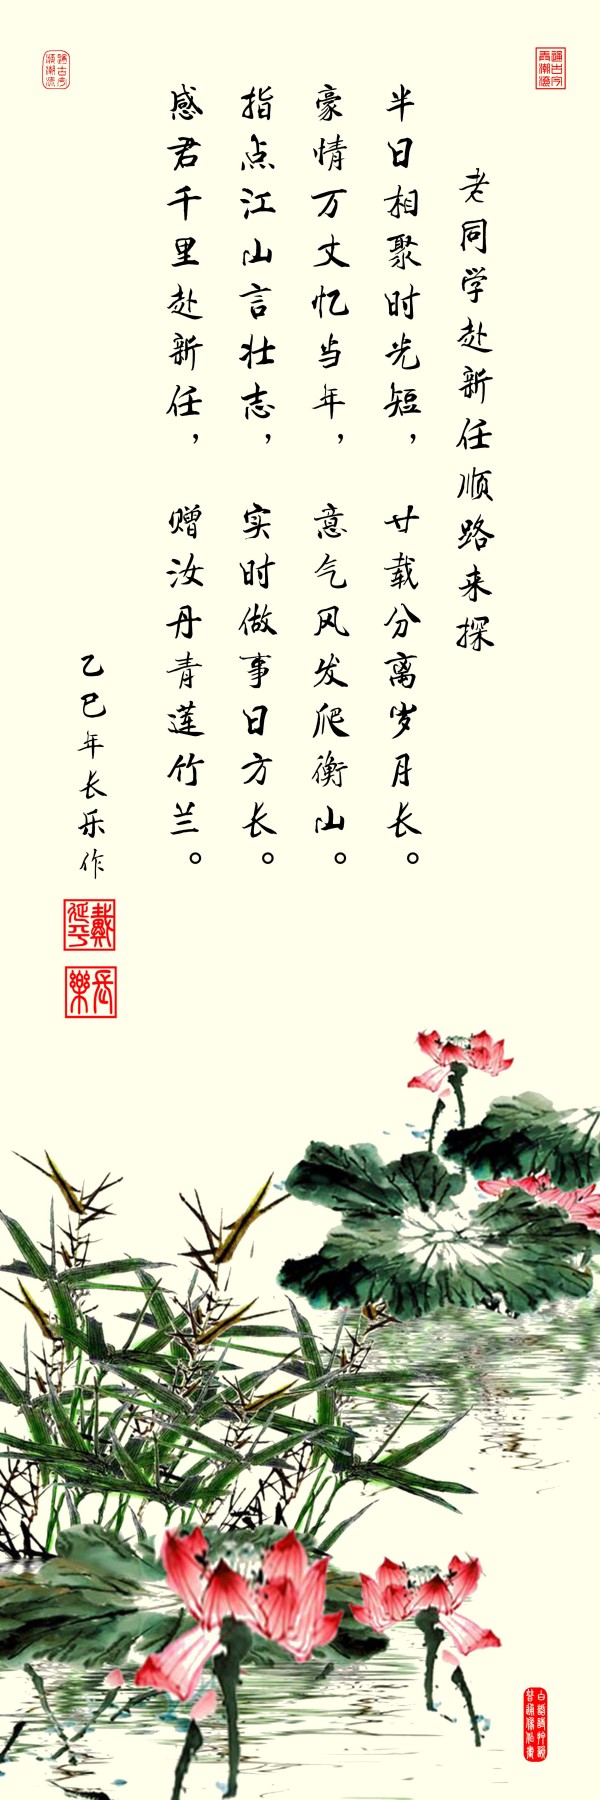 老同学赴新任顺路来探
半日相聚时光短，廿载分离岁月长。
豪情万丈忆当年，意气风发爬衡山。
指点江山言壮志，实时做事日方长。
感君千里赴新任，赠汝丹青莲竹兰。
乙巳年长乐作
戴延平
长樂